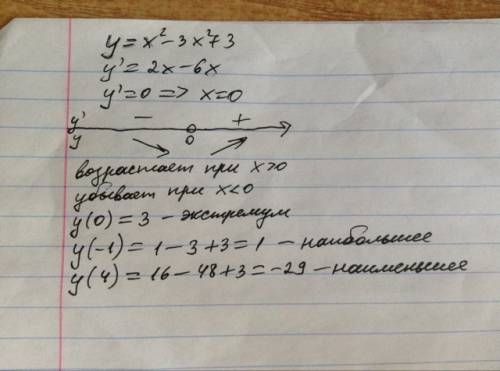 y = x² - 3x² + 3
y' = 2x - 6x
y' = 0 => x = 0
y' - +
y 0
возрастает при x>0
убывает при x<0
y(0) = 3 - экстремум
y(-1) = 1 - 3 + 3 = 1 - наибольшее
y(4) = 16 - 48 + 3 = -29 - наименьшее